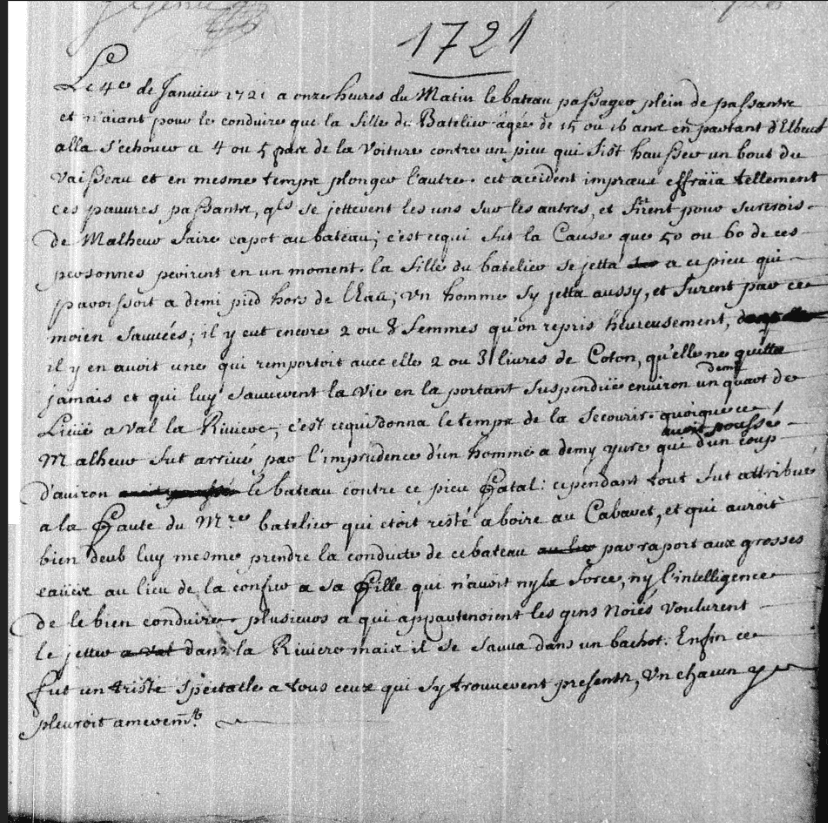 1721
Le 4e de Janvier 1721 a onze heures du Matin le bateau passager plein de passants
et n'aiant pour le conduire que la fille du Batelier âgée de 15 ou 16 ans en partant d'Elbeuf
alla s'echouer a 4 ou 5 pas de la voiture contre un pieu qui fist hausser un bout du
vaisseau et en mesme temps plonger l'autre. cet accident impreveu effraïa tellement
ces pauvres passants, qls se jetterent les uns sur les autres, et firent pour surcrois
de Malheur faire capot au bateau; c'est cequi fut la Cause que 50 ou 60 de ces
personnes perirent en un moment. la fille du batelier se jetta a ce pieu qui
paroissoit a demi pied hors de l'Eau; un homme sy jetta aussy, et furent par ce
moien sauvées; il y eut encore 2 ou 3 femmes qu'on repris heureusement,
il y en avoit une qui remportoit avec elle 2 ou 3 livres de Coton, qu'elle ne quitta
jamais et qui luy sauverent la vie en la portant suspendüe environ un demy quart de
Lieüe a val la Riviere, c'est cequi donna le temps de la secourir. quoique ce
Malheur fut arrivé par l'imprudence d'un homme a demy yure qui avoit poussé d'un coup
d'aviron le bateau contre ce pieu fatal: cependant tout fut attribué
a la faute du Mre batelier qui etoit resté a boire au Cabaret, et qui auroit
bien deub luy mesme prendre la conduite de ce bateau par raport aux grosses
eaüix au lieu de la confier a sa fille qui n'avoit ny la force, ny l'intelligence
de le bien conduire. plusieurs a qui appartenoient les gens Noiés voulurent
le jetter dans la Riviere mais il se sauva dans un bachot. Enfin ce
fut un triste spectacle a tous ceux qui sy trouverent presents, Un chacun y
pleuroit ameremt.